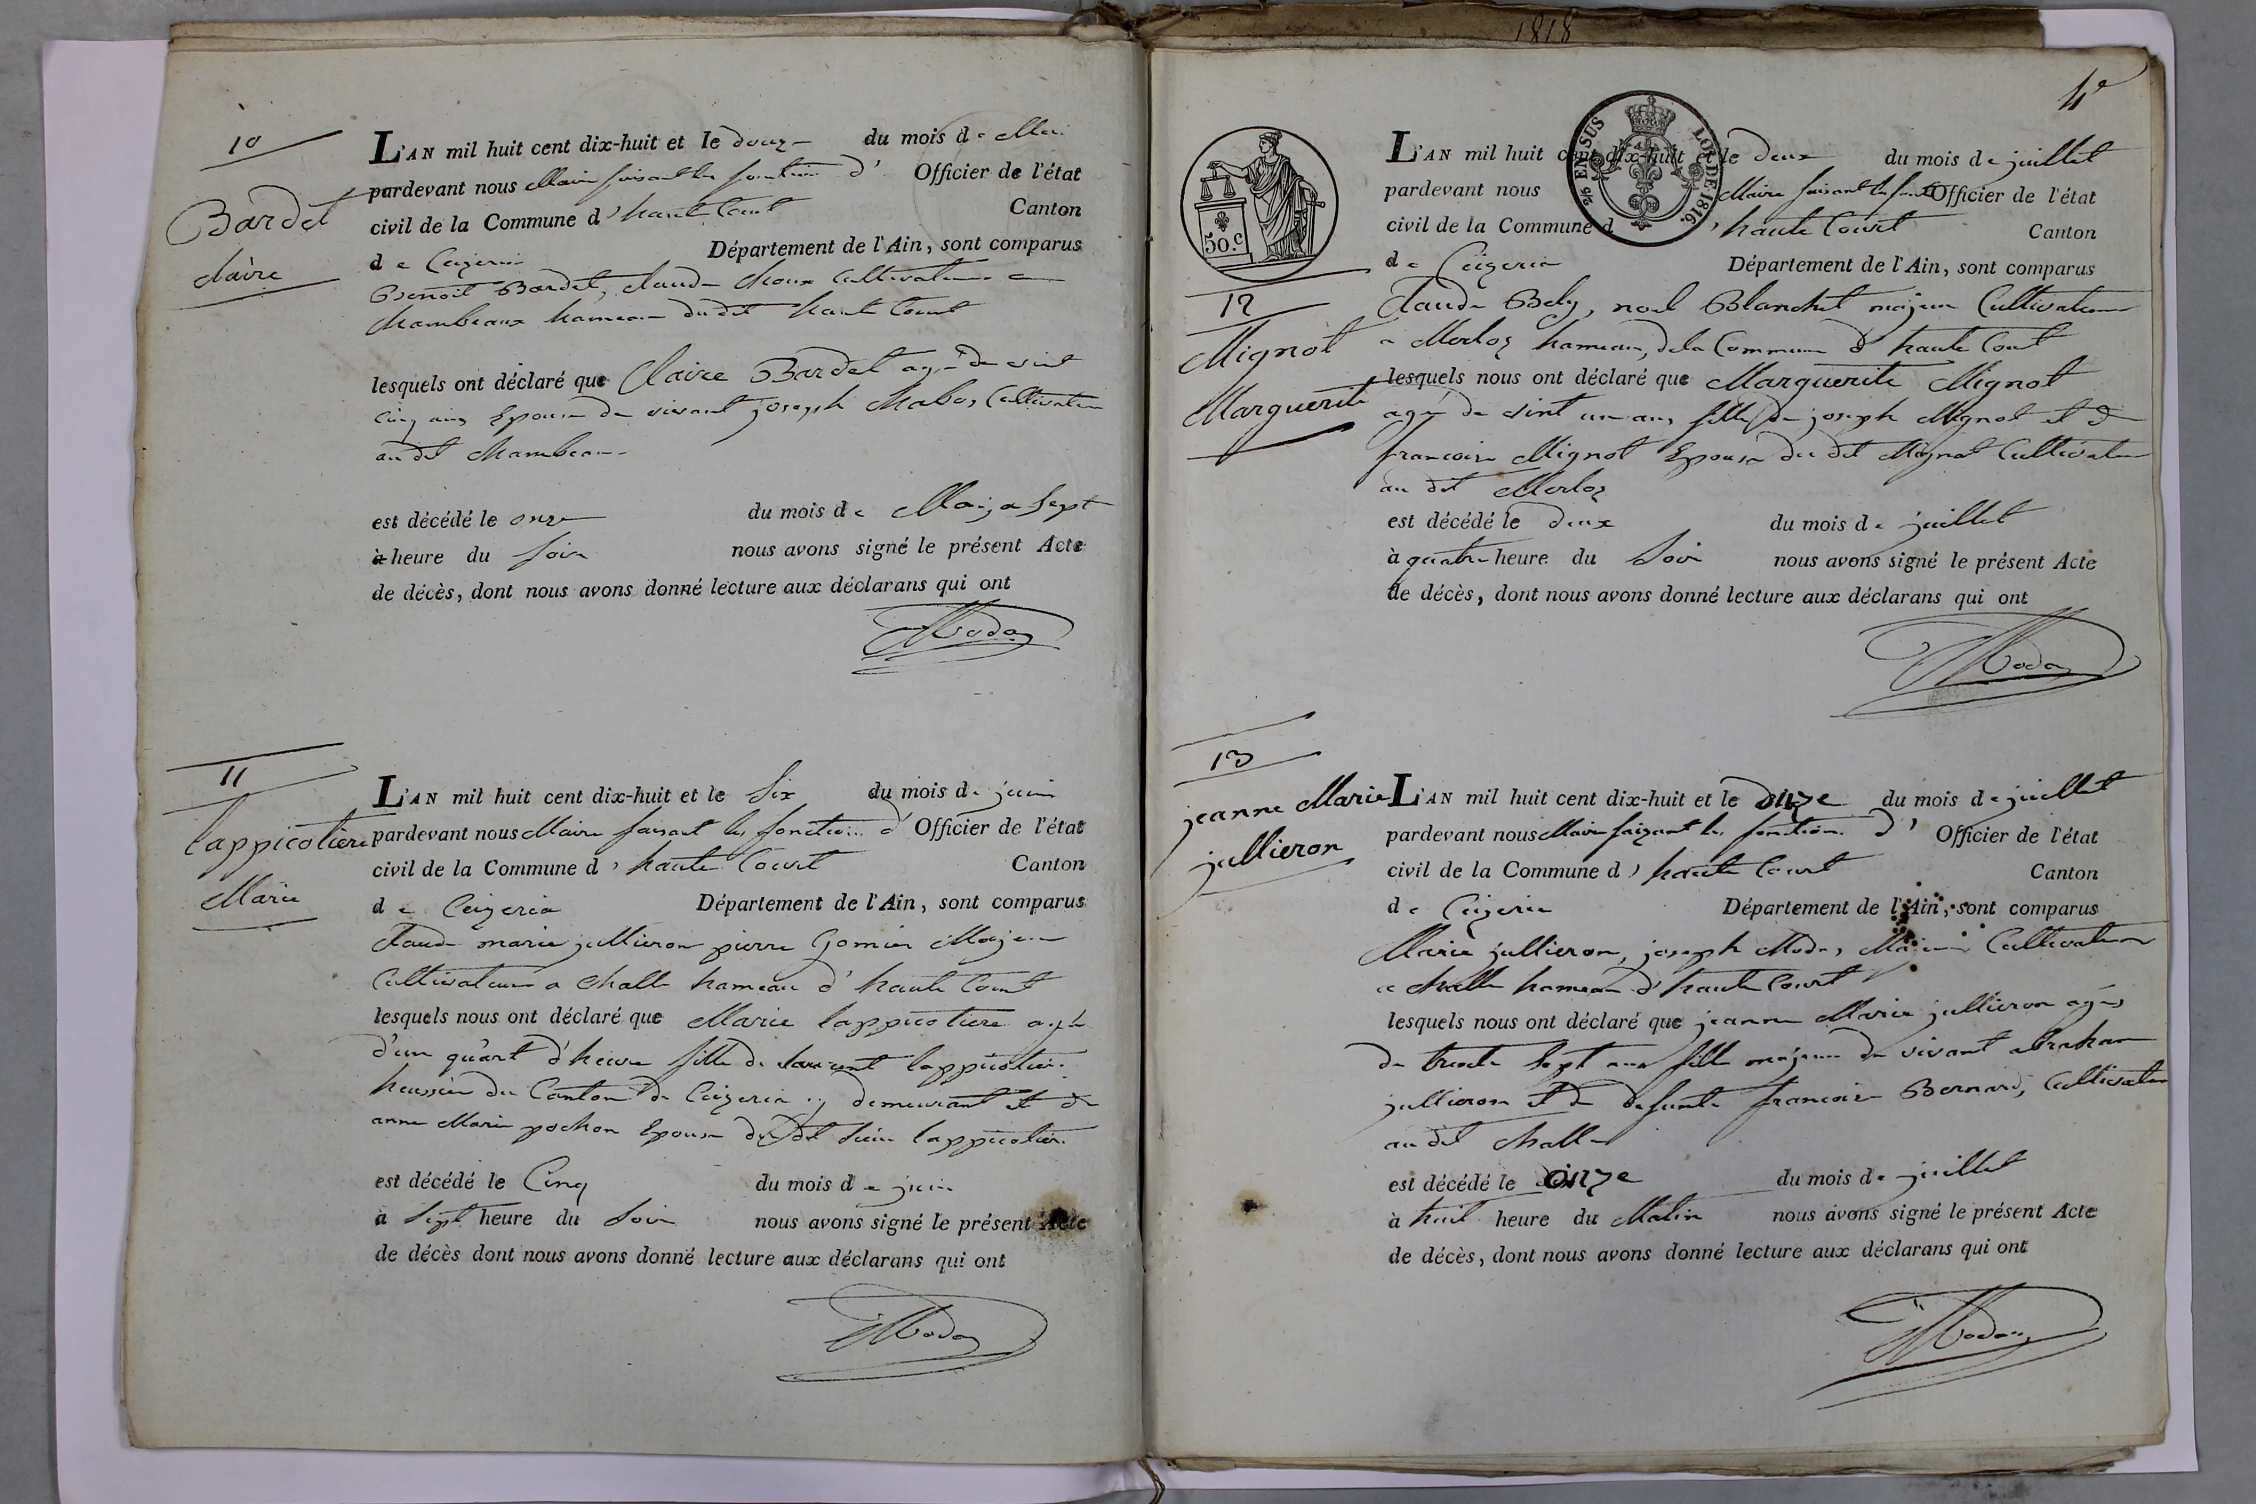 1818
10
Bardet
claire
L'AN mil huit cent dix-huit et le douze du mois de Mai
pardevant nous Maire faisant les fonction d' Officier de l'état
civil de la Commune d'haute Court Canton
de Ceyzeria Département de l'Ain, sont comparus
Benoit Bardet, claude Cultivateurs a
Chambeaux hameau dudit haute Court
lesquels ont déclaré que Claire Bardet agée de vint
cinq ans Epouse de vivant joseph Cultivateur
au dit Chambeau
est décédé le onze du mois de Mai, a sept
à heure du Soir nous avons signé le présent Acte
de décès, dont nous avons donné lecture aux déclarans qui ont
11
lappicotiere
Marie
L'AN mil huit cent dix-huit et le Six du mois de juin
pardevant nous Maire faisant les fonction d' Officier de l'état
civil de la Commune d'haute Court Canton
de Ceyzeria Département de l'Ain, sont comparus
claude marie jullieron pierre Gomier Majeur
Cultivateurs a Challe hameau d'haute Court
lesquels nous ont déclaré que Marie lappicotiere agée
d'un quart d'heure fille de laurent lappicotiere
huissier du Canton de Ceyzeria y demeurant et de
anne Marie pochon Epouse du dit Sieur lappicotiere
est décédé le Cinq du mois de juin
à Sept heure du Soir nous avons signé le présent Acte
de décès dont nous avons donné lecture aux déclarans qui ont
4e
50.c
2/5 EN SUS LOI DE 1816.
12
Mignot
Marguerite
L'AN mil huit cent dix-huit et le deux du mois de juillet
pardevant nous Maire faisant les fonct Officier de l'état
civil de la Commune d'haute Court Canton
de Ceizeria Département de l'Ain, sont comparus
Claude Bely, noel Blanchet majeur Cultivateurs
a Merloz hameau, de la Commune d'haute Court
lesquels nous ont déclaré que Marguerite Mignot
agée de vint un ans, fille de joseph Mignot et de
francoise Mignot Epouse du dit Mignot Cultivateur
au dit Merloz
est décédé le deux du mois de juillet
à quatre heure du Soir nous avons signé le présent Acte
de décès, dont nous avons donné lecture aux déclarans qui ont
13
jeanne Marie
jullieron
L'AN mil huit cent dix-huit et le onze du mois de juillet
pardevant nous Maire faizant les fonction d' Officier de l'état
civil de la Commune d'haute Court Canton
de Ceizerie Département de l'Ain, sont comparus
Marie jullieron, joseph Modas Majeur Cultivateurs
a Challe hameau d'haute Court
lesquels nous ont déclaré que jeanne Marie jullieron agée
de trente sept ans fille majeure de vivant abraham
jullieron et de defunte francoise Bernard, Cultivateur
au dit Challe
est décédé le onze du mois de juillet
à huit heure du Matin nous avons signé le présent Acte
de décès, dont nous avons donné lecture aux déclarans qui ont